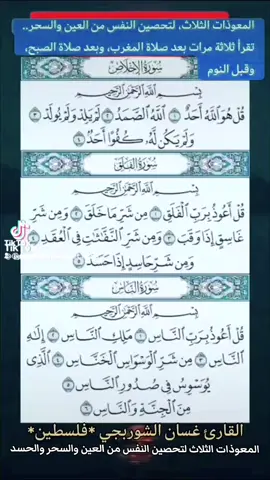 المعوذات الثلاث، لتحصين النفس من العين والسحر..
تقرأ ثلاثة مرات بعد صلاة المغرب، وبعد صلاة الصبح،
وقبل النوم
سُورَةُ الإِخْلَاصِ
بِسْمِ اللَّهِ الرَّحْمَٰنِ الرَّحِيمِ
قُلْ هُوَ اللَّهُ أَحَدٌ ۝١ اللَّهُ الصَّمَدُ ۝٢ لَمْ يَلِدْ وَلَمْ يُولَدْ ۝٣
وَلَمْ يَكُن لَّهُ كُفُوًا أَحَدٌ ۝٤
سُورَةُ الفَلَقِ
بِسْمِ اللَّهِ الرَّحْمَٰنِ الرَّحِيمِ
قُلْ أَعُوذُ بِرَبِّ الْفَلَقِ ۝١ مِن شَرِّ مَا خَلَقَ ۝٢ وَمِن شَرِّ
غَاسِقٍ إِذَا وَقَبَ ۝٣ وَمِن شَرِّ النَّفَّاثَاتِ فِي الْعُقَدِ ۝٤
وَمِن شَرِّ حَاسِدٍ إِذَا حَسَدَ ۝٥
سُورَةُ النَّاسِ
بِسْمِ اللَّهِ الرَّحْمَٰنِ الرَّحِيمِ
قُلْ أَعُوذُ بِرَبِّ النَّاسِ ۝١ مَلِكِ النَّاسِ ۝٢ إِلَٰهِ
النَّاسِ ۝٣ مِن شَرِّ الْوَسْوَاسِ الْخَنَّاسِ ۝٤ الَّذِي
يُوَسْوِسُ فِي صُدُورِ النَّاسِ ۝٥
مِنَ الْجِنَّةِ وَالنَّاسِ ۝٦
القارئ غسان الشوربجي *فلسطين*
المعوذات الثلاث لتحصين النفس من العين والسحر والحسد